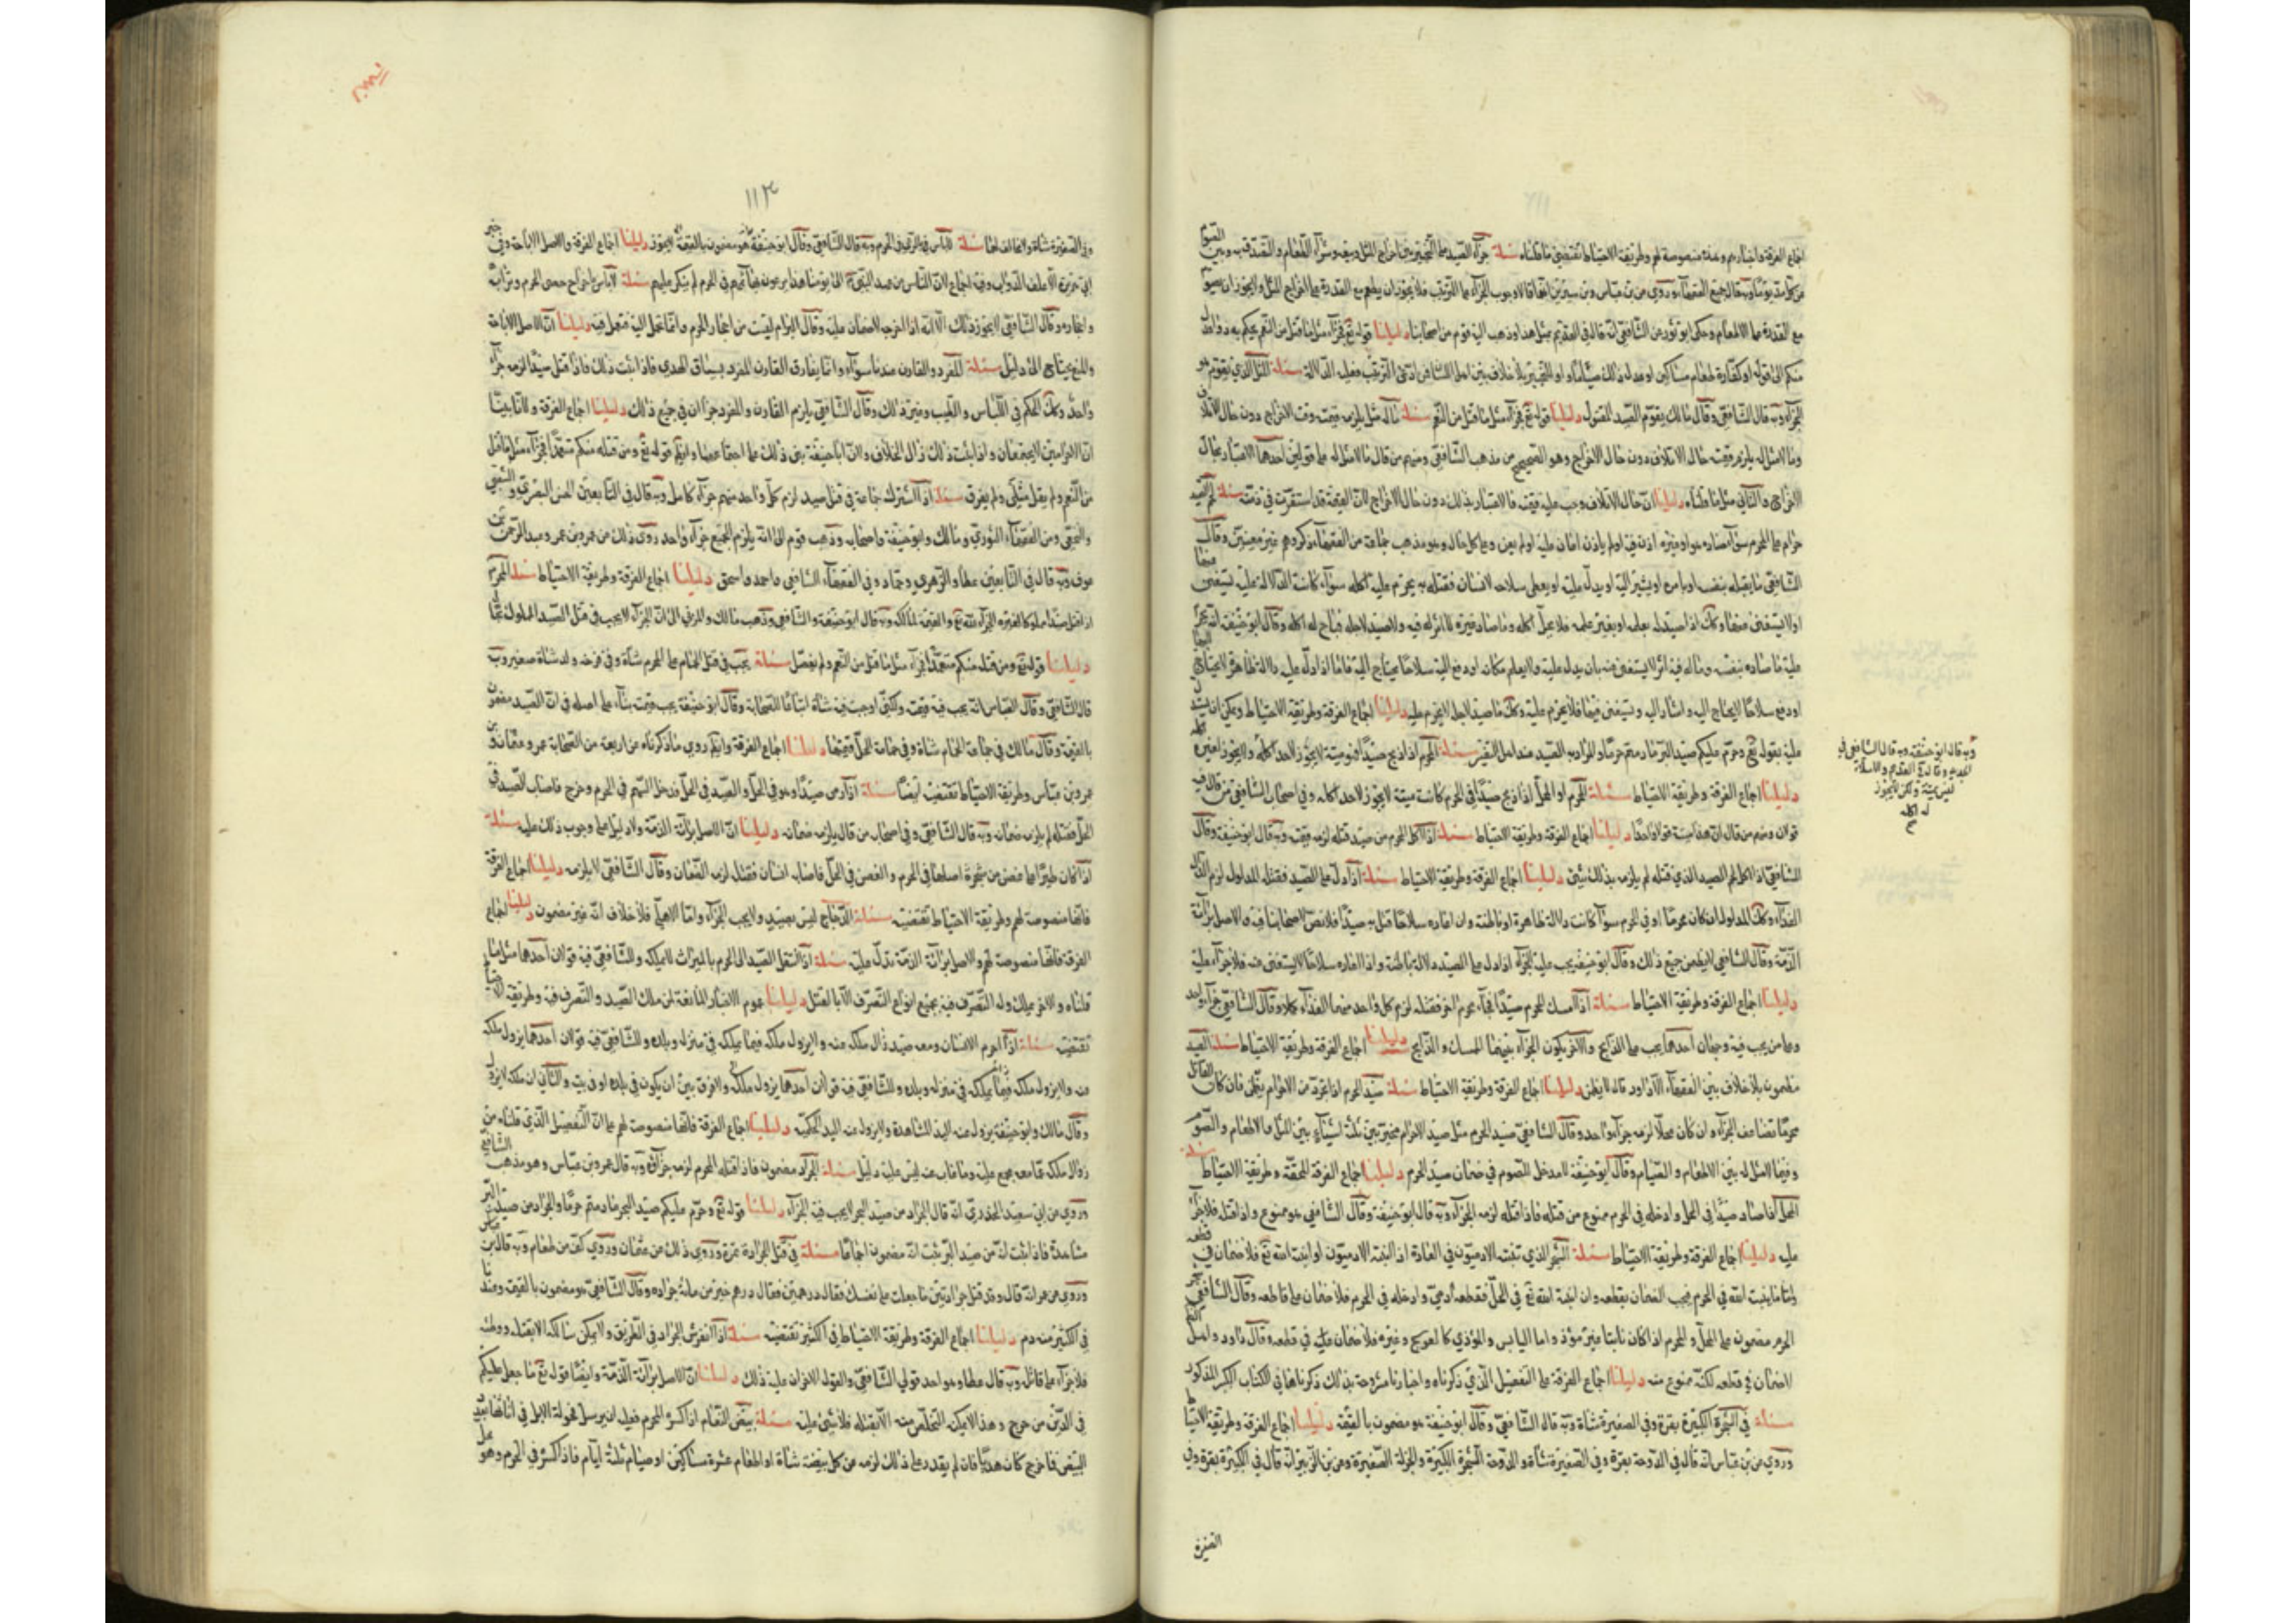 اجماع الفرقة واخبارهم وهذه منصوصة لهم وطريقة الاحتياط تقتضي ما قلناه مسئلة جزآء الصيد على التخيير بين اخراج المثل وبيعه وشرآء الطعام والتصدق به وبين الصوم
عن كل مد يوما وبه قال جميع الفقهآء وروي عن بن عباس وبن سيرين انهما قالا وجوب الجزآء على الترتيب فلا يجوز ان يطعم مع القدرة على اخراج المثل ولا يجوز ان يصوم
مع القدرة على الاطعام وحكى ابو ثور عن الشافعي انه قال في القديم مثل هذا وذهب اليه قوم من اصحابنا دليلنا قوله تع فجزآء مثل ما قتل من النعم يحكم به ذوا عدل
منكم الى قوله او كفارة طعام مساكين او عدل ذلك صياما واو للتخيير بلا خلاف بين اهل اللسان فمن ادعى الترتيب فعليه الدلالة مسئلة المثل الذي يقوم هو
الجزآء وبه قال الشافعي وقال مالك يقوم الصيد المقتول دليلنا قوله تع فجزآء مثل ما قتل من النعم مسئلة ما له مثل يلزم قيمته وقت الاخراج دون حال الاتلاف
وما لا مثل له يلزم قيمته حال الاتلاف دون حال الاخراج وهو الصحيح من مذهب الشافعي ومنهم من قال ما لا مثل له على قولين احدهما الاعتبار بحال
الاخراج والثاني مثل ما قلناه دليلنا ان حال الاتلاف وجب عليه قيمته فالاعتبار بذلك دون حال الاخراج لان القيمة قد استقرت في ذمته مسئلة لحم الصيد
حرام على المحرم سوآء صاده هو او غيره اذن فيه او لم ياذن اعان عليه او لم يعن وعلى كل حال وهو مذهب جماعة من الفقهآء ذكروهم غير معينين وقال
الشافعي ما يقتله بنفسه او بامره او يشير اليه او يدل عليه او يعطي سلاحه لانسان فقتله به يحرم عليه اكله سوآء كانت الدلالة عليه يستغنى عنها
او لا يستغنى عنها وكك اذا صيد له بعلمه او بغير علمه فلا يحل اكله وما صاده غيره لا اثر له فيه ولا صيد لاجله فباح له اكله وقال ابو حنيفة انه يحرم
عليه ما صاده بنفسه وما له فيه اثر لا يستغنى عنه بان يدل عليه ولا يعلم مكانه او دفع اليه سلاحا يحتاج اليه فاما اذا دل عليه دلالة ظاهرة لا يحتاج اليها
او دفع سلاحا لا يحتاج اليه واشار اليه ويستغنى فيها فلا يحرم عليه وكك ما صيد لاجله لا يحرم عليه دليلنا اجماع الفرقة وطريقة الاحتياط ويمكن ان يستدل
عليه بقوله تع وحرم عليكم صيد البر ما دمتم حرما والمراد به الصيد عند اهل التفسير مسئلة المحرم اذا ذبح صيدا فهو ميتة لا يجوز لاحد اكله ولا يجوز لغيره اكله
دليلنا اجماع الفرقة وطريقة الاحتياط مسئلة المحرم او المحل اذا ذبح صيدا في الحرم كانت ميتة لا يجوز لاحد اكله وفي اصحاب الشافعي من قال فيه
قولان ومنهم من قال ان هذا ميتة قولا واحدا دليلنا اجماع الفرقة وطريقة الاحتياط مسئلة اذا اكل المحرم من صيد قتله لزمه قيمته وبه قال ابو حنيفة وقال
الشافعي اذا اكل لحم الصيد الذي قتله لم يلزمه بذلك شئ دليلنا اجماع الفرقة وطريقة الاحتياط مسئلة اذا دل على الصيد فقتله المدلول لزم الدال
الفدآء وكك المدلول ان كان محرما او في الحرم سوآء كانت دلالة ظاهرة او باطنة وان اعاره سلاحا قتل به صيدا فلا نص لاصحابنا فيه والاصل برآئة
الذمة وقال الشافعي لا يضمن جميع ذلك وقال ابو حنيفة يجب عليه الجزآء اذا دل على الصيد دلالة باطنة واذا اعاره سلاحا لا يستغنى عنه فلا جزآء عليه
دليلنا اجماع الفرقة وطريقة الاحتياط مسئلة اذا امسك المحرم صيدا فجآء محرم اخر فقتله لزم كل واحد منهما الفدآء كملا وقال الشافعي جزآء واحد
وعلى من يجب فيه وجهان احدهما يجب على الذابح والاخر يكون الجزآء بينهما الممسك والذابح دليلنا اجماع الفرقة وطريقة الاحتياط مسئلة الصيد
مضمون بلا خلاف بين الفقهآء الا داود قال لا يضمن دليلنا اجماع الفرقة وطريقة الاحتياط مسئلة صيد الحرم اذا تجرد عن الاحرام يضمن فان كان القاتل
محرما تضاعف الجزآء وان كان محلا لزمه جزآء واحد وقال الشافعي صيد الحرم مثل صيد الاحرام مخير بين ثلثة اشيآء بين المثل والاطعام والصوم
وفيما لا مثل له بين الاطعام والصيام وقال ابو حنيفة لا مدخل للصوم في ضمان صيد الحرم دليلنا اجماع الفرقة المحقة وطريقة الاحتياط مسئلة
المحل اذا صاد صيدا في الحل وادخله في الحرم ممنوع من قتله فاذا قتله لزمه الجزآء وبه قال ابو حنيفة وقال الشافعي هو ممنوع واذا قتله فلا جزآء
عليه دليلنا اجماع الفرقة وطريقة الاحتياط مسئلة الشجر الذي تنبته الادميون في العادة اذا انبته الادميون او انبته الله تع فلا ضمان في قطعه
واما ما ينبت الله في الحرم فيجب الضمان بقطعه وان انبته الله تع في الحل فقطعه آدمي وادخله في الحرم فلا ضمان على قاطعه وقال الشافعي شجر
الحرم مضمون على المحل والمحرم اذا كان نابتا غير مؤذ واما اليابس والمؤذي كالعوسج وغيره فلا ضمان عليه في قطعه وقال داود واهل
لا ضمان في قطعه لكنه ممنوع منه دليلنا اجماع الفرقة على التفصيل الذي ذكرناه واخبارنا مشروحة بذلك ذكرناها في الكتاب الكبير المذكور
مسئلة في الشجرة الكبيرة بقرة وفي الصغيرة شاة وبه قال الشافعي وقال ابو حنيفة هو مضمون بالقيمة دليلنا اجماع الفرقة وطريقة الاحتياط
وروي عن بن عباس انه قال في الدوحة بقرة وفي الصغيرة شاة والدوحة الشجرة الكبيرة والجزلة الصغيرة وعن بن الزبير انه قال في الكبيرة بقرة وفي
الصغيرة
وبه قال ابو حنيفة وبه قال الشافعي في
الجديد وقال في القديم والاملاء
ليس بميتة ولكن لا يجوز
له اكله
١١٣
وفي الصغيرة شاة ولا مخالف لهما مسئلة لا باس في الرعي في الحرم وبه قال الشافعي وقال ابو حنيفة هو مضمون بالقيمة لا يجوز دليلنا اجماع الفرقة والاصل الاباحة وفي خبر
ابي هريرة الا علف الدواب وفيه اجماع لان الناس من عهد النبي الى يومنا هذا يرعون بهائمهم في الحرم لم ينكر عليهم مسئلة لا باس باخراج حصى الحرم وترابه
واحجاره وقال الشافعي لا يجوز ذلك الا انه اذا اخرجه لا ضمان عليه وقال البرام ليست من احجار الحرم وانما تحمل اليه فتعمل فيه دليلنا ان الاصل الاباحة
والمنع يحتاج الى دليل مسئلة المفرد والقارن عندنا سوآء وانما يفارق القارن المفرد بسياق الهدي فاذا ثبت ذلك فاذا قتل صيدا لزمه جزآء
واحد وكك الحكم في اللباس والطيب وغير ذلك وقال الشافعي يلزم القارن والمفرد جزاان في جميع ذلك دليلنا اجماع الفرقة ولانا بينا
ان الاحرامين لا يجتمعان واذا ثبت ذلك زال الخلاف ولان ابا حنيفة بنى ذلك على اجتماعهما وايضا قوله تع ومن قتله منكم متعمدا فجزآء مثل ما قتل
من النعم ولم يقل مثلي ولم يفرق مسئلة اذا اشترك جماعة في قتل صيد لزم كل واحد منهم جزآء كامل وبه قال في التابعين الحسن البصري والشعبي
والنخعي ومن الفقهآء الثوري ومالك وابو حنيفة واصحابه وذهب قوم الى انه يلزم الجميع جزآء واحد روى ذلك عن عمر وبن عمر وعبد الرحمن بن
عوف وبه قال في التابعين عطا والزهري وحماد وفي الفقهآء الشافعي واحمد واسحق دليلنا اجماع الفرقة وطريقة الاحتياط مسئلة المحرم
اذا قتل صيدا مملوكا لغيره الجزآء لله تع والقيمة لمالكه وبه قال ابو حنيفة والشافعي وذهب مالك والمزني الى ان الجزآء لا يجب في قتل الصيد المملوك بحال
دليلنا قوله تع ومن قتله منكم متعمدا فجزآء مثل ما قتل من النعم ولم يفصل مسئلة يجب في قتل الحمام على المحرم شاة وفي فرخه ولد شاة صغير وبه
قال الشافعي وقال القياس انه يجب فيه قيمته ولكني اوجبت فيه شاة اتباعا للصحابة وقال ابو حنيفة يجب قيمته بنآء على اصله في ان الصيد مضمون
بالقيمة وقال مالك في حمامة الحرم شاة وفي حمامة الحل قيمتها دليلنا اجماع الفرقة وايضا روي ما ذكرناه عن اربعة من الصحابة عمر وعثمان وبن
عمر وبن عباس وطريقة الاحتياط تقتضيه ايضا مسئلة اذا رمى صيدا وهو في الحل والصيد في الحل فدخل السهم في الحرم وخرج فاصاب الصيد في
الحل فقتله لم يلزمه ضمانه وبه قال الشافعي وفي اصحابه من قال يلزمه ضمانه دليلنا ان الاصل برآئة الذمة ولا دليل على وجوب ذلك عليه مسئلة
اذا كان طيرا على غصن من شجرة اصلها في الحرم والغصن في الحل فاصابه انسان فقتله لزمه الضمان وقال الشافعي لا يلزمه دليلنا اجماع الفرقة
فانها منصوصة لهم وطريقة الاحتياط تقتضيه مسئلة الدجاج ليس بصيد ولا يجب الجزآء واما الاهلي فلا خلاف انه غير مضمون دليلنا اجماع
الفرقة فانها منصوصة لهم والاصل برآئة الذمة تدل عليه مسئلة اذا انتقل الصيد الى المحرم بالميراث لا يملكه وللشافعي فيه قولان احدهما مثل ما
قلناه والاخر يملك وله التصرف فيه بجميع انواع التصرف الا بالقتل دليلنا عموم الاخبار المانعة لمن ملك الصيد والتصرف فيه وطريقة الاحتياط
تقتضيه مسئلة اذا احرم الانسان ومعه صيد زال ملكه عنه ولا يزول ملكه فيما يملكه في منزله وبلده وللشافعي فيه قولان احدهما يزول ملكه
عنه ولا يزول ملكه فيما يملكه في منزله وبلده وللشافعي فيه قولان احدهما يزول ملكه ولا فرق بين ان يكون في بلده او في بيته والثاني ان ملكه لا يزول
وقال مالك وابو حنيفة يزول عنه اليد المشاهدة ولا يزول عنه اليد الحكمية دليلنا اجماع الفرقة فانها منصوصة لهم على ان التفصيل الذي قلناه من
زوال ملكه عما معه مجمع عليه وما غاب عنه ليس عليه دليل مسئلة الجراد مضمون فاذا قتله المحرم لزمه جزآؤه وبه قال عمر وبن عباس وهو مذهب الشافعي
وروي عن ابي سعيد الخدري انه قال الجراد من صيد البحر لا يجب فيه الجزآء دليلنا قوله تع وحرم عليكم صيد البر ما دمتم حرما والجراد من صيد البر
مشاهدة فاذا ثبت انه من صيد البر ثبت انه مضمون اجماعا مسئلة في قتل الجرادة تمرة وروي ذلك عن عثمان وروي كف من طعام وبه قال بن عباس
وروي عن عمر انه قال وقد قتل جرادتين ما جعلت على نفسك فقال درهمين فقال درهم خير من مائة جراده وقال الشافعي هو مضمون بالقيمة وعندنا
في الكثير منه دم دليلنا اجماع الفرقة وطريقة الاحتياط في الكثير تقتضيه مسئلة اذا انفرش الجراد في الطريق ولا يمكن سالكه الا بقتله ووطئه
فلا جزآء على قاتله وبه قال عطا وهو احد قولي الشافعي والقول الاخر ان عليه ذلك دليلنا ان الاصل برآئة الذمة وايضا قوله تع ما جعل عليكم
في الدين من حرج وهذا لا يمكنه التخلص منه الا بقتله فلا شئ عليه مسئلة بيض النعام اذا كسره المحرم فعليه ان يرسل فحولة الابل في اناثها بعدد
البيض فما خرج كان هديا فان لم يقدر على ذلك لزمه عن كل بيضة شاة او اطعام عشرة مساكين او صيام ثلثة ايام فاذا كسره في الحرم وهو محل